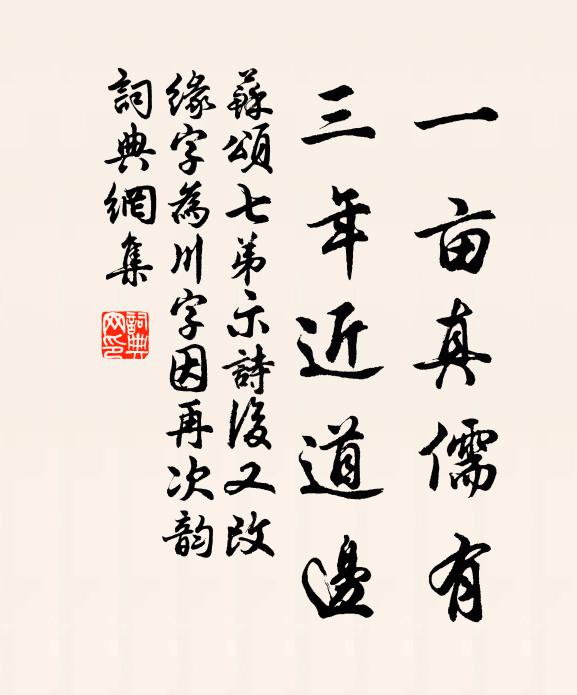 一亩真儒有
三年近道邊
蘇頌七弟示詩後又改
緣字為川字因再次韵
詞典網集
詞典
网印